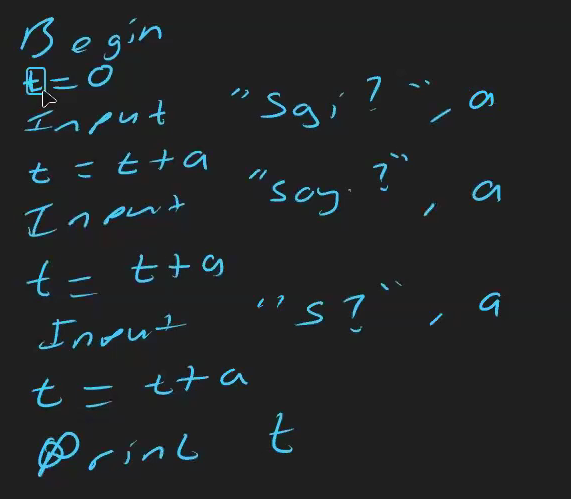 Begin
t = 0
Input "Sgi?", a
t = t + a
Input "say?", a
t = t + a
Input "s?", a
t = t + a
Print t